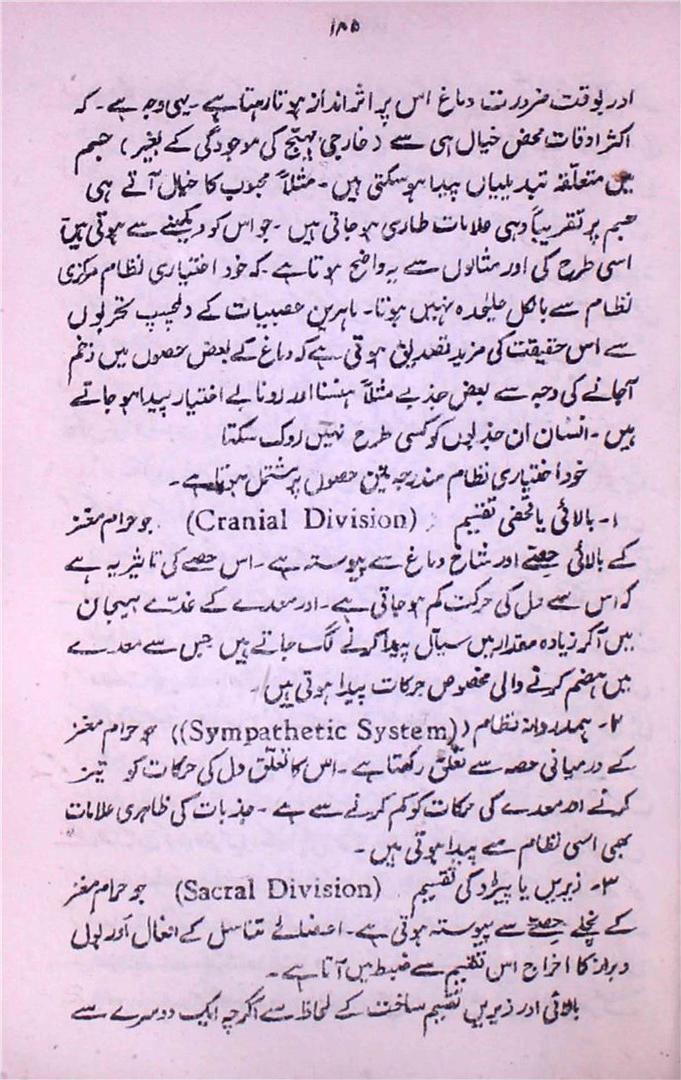 ۱۸۵
اور بوقت ضرورت دماغ اس پر اثر انداز ہوتا رہتا ہے۔ یہی وجہ ہے۔ کہ
اکثر اوقات محض خیال ہی سے (خارجی مہیج کی موجودگی کے بغیر) جسم
میں متعلقہ تبدیلیاں پیدا ہو سکتی ہیں۔ مثلاً محبوب کا خیال آتے ہی
جسم پر تقریباً وہی علامات طاری ہو جاتی ہیں۔ جو اس کو دیکھنے سے ہوتی ہیں
اسی طرح کی اور مثالوں سے یہ واضح ہوتا ہے۔ کہ خود اختیاری نظام مرکزی
نظام سے بالکل علیحدہ نہیں ہوتا۔ ماہرین عصبیات کے دلچسپ تجربوں
سے اس حقیقت کی مزید تصدیق ہوتی ہے کہ دماغ کے بعض حصوں میں زخم
آجانے کی وجہ سے بعض جذبے مثلاً ہنسنا اور رونا بے اختیار پیدا ہو جاتے
ہیں۔ انسان ان جذبوں کو کسی طرح نہیں روک سکتا
خود اختیاری نظام مندرجہ تین حصوں پر مشتمل ہوتا ہے۔
۱۔ بالائی یا قحفی تقسیم : (Cranial Division) جو حرام مغز
کے بالائی حصے اور شاخ دماغ سے پیوستہ ہے۔ اس حصے کی تاثیر یہ ہے
کہ اس سے دل کی حرکت کم ہو جاتی ہے۔ اور معدے کے غدے ہیجان
میں آکر زیادہ مقدار میں سیال پیدا کرنے لگ جاتے ہیں جس سے معدے
میں ہضم کرنے والی مخصوص حرکات پیدا ہوتی ہیں۔
۲۔ ہمدردانہ نظام ((Sympathetic System)) جو حرام مغز
کے درمیانی حصہ سے تعلق رکھتا ہے۔ اس کا تعلق دل کی حرکات کو تیز
کرنے اور معدے کی حرکات کو کم کرنے سے ہے۔ جذبات کی ظاہری علامات
بھی اسی نظام سے پیدا ہوتی ہیں۔
۳۔ زیریں یا پیڑو کی تقسیم (Sacral Division) جو حرام مغز
کے نچلے حصے سے پیوستہ ہوتی ہے۔ اعضائے تناسل کے افعال اور بول
و براز کا اخراج اس تقسیم سے ضبط میں آتا ہے۔
بالائی اور زیریں تقسیم ساخت کے لحاظ سے اگرچہ ایک دوسرے سے